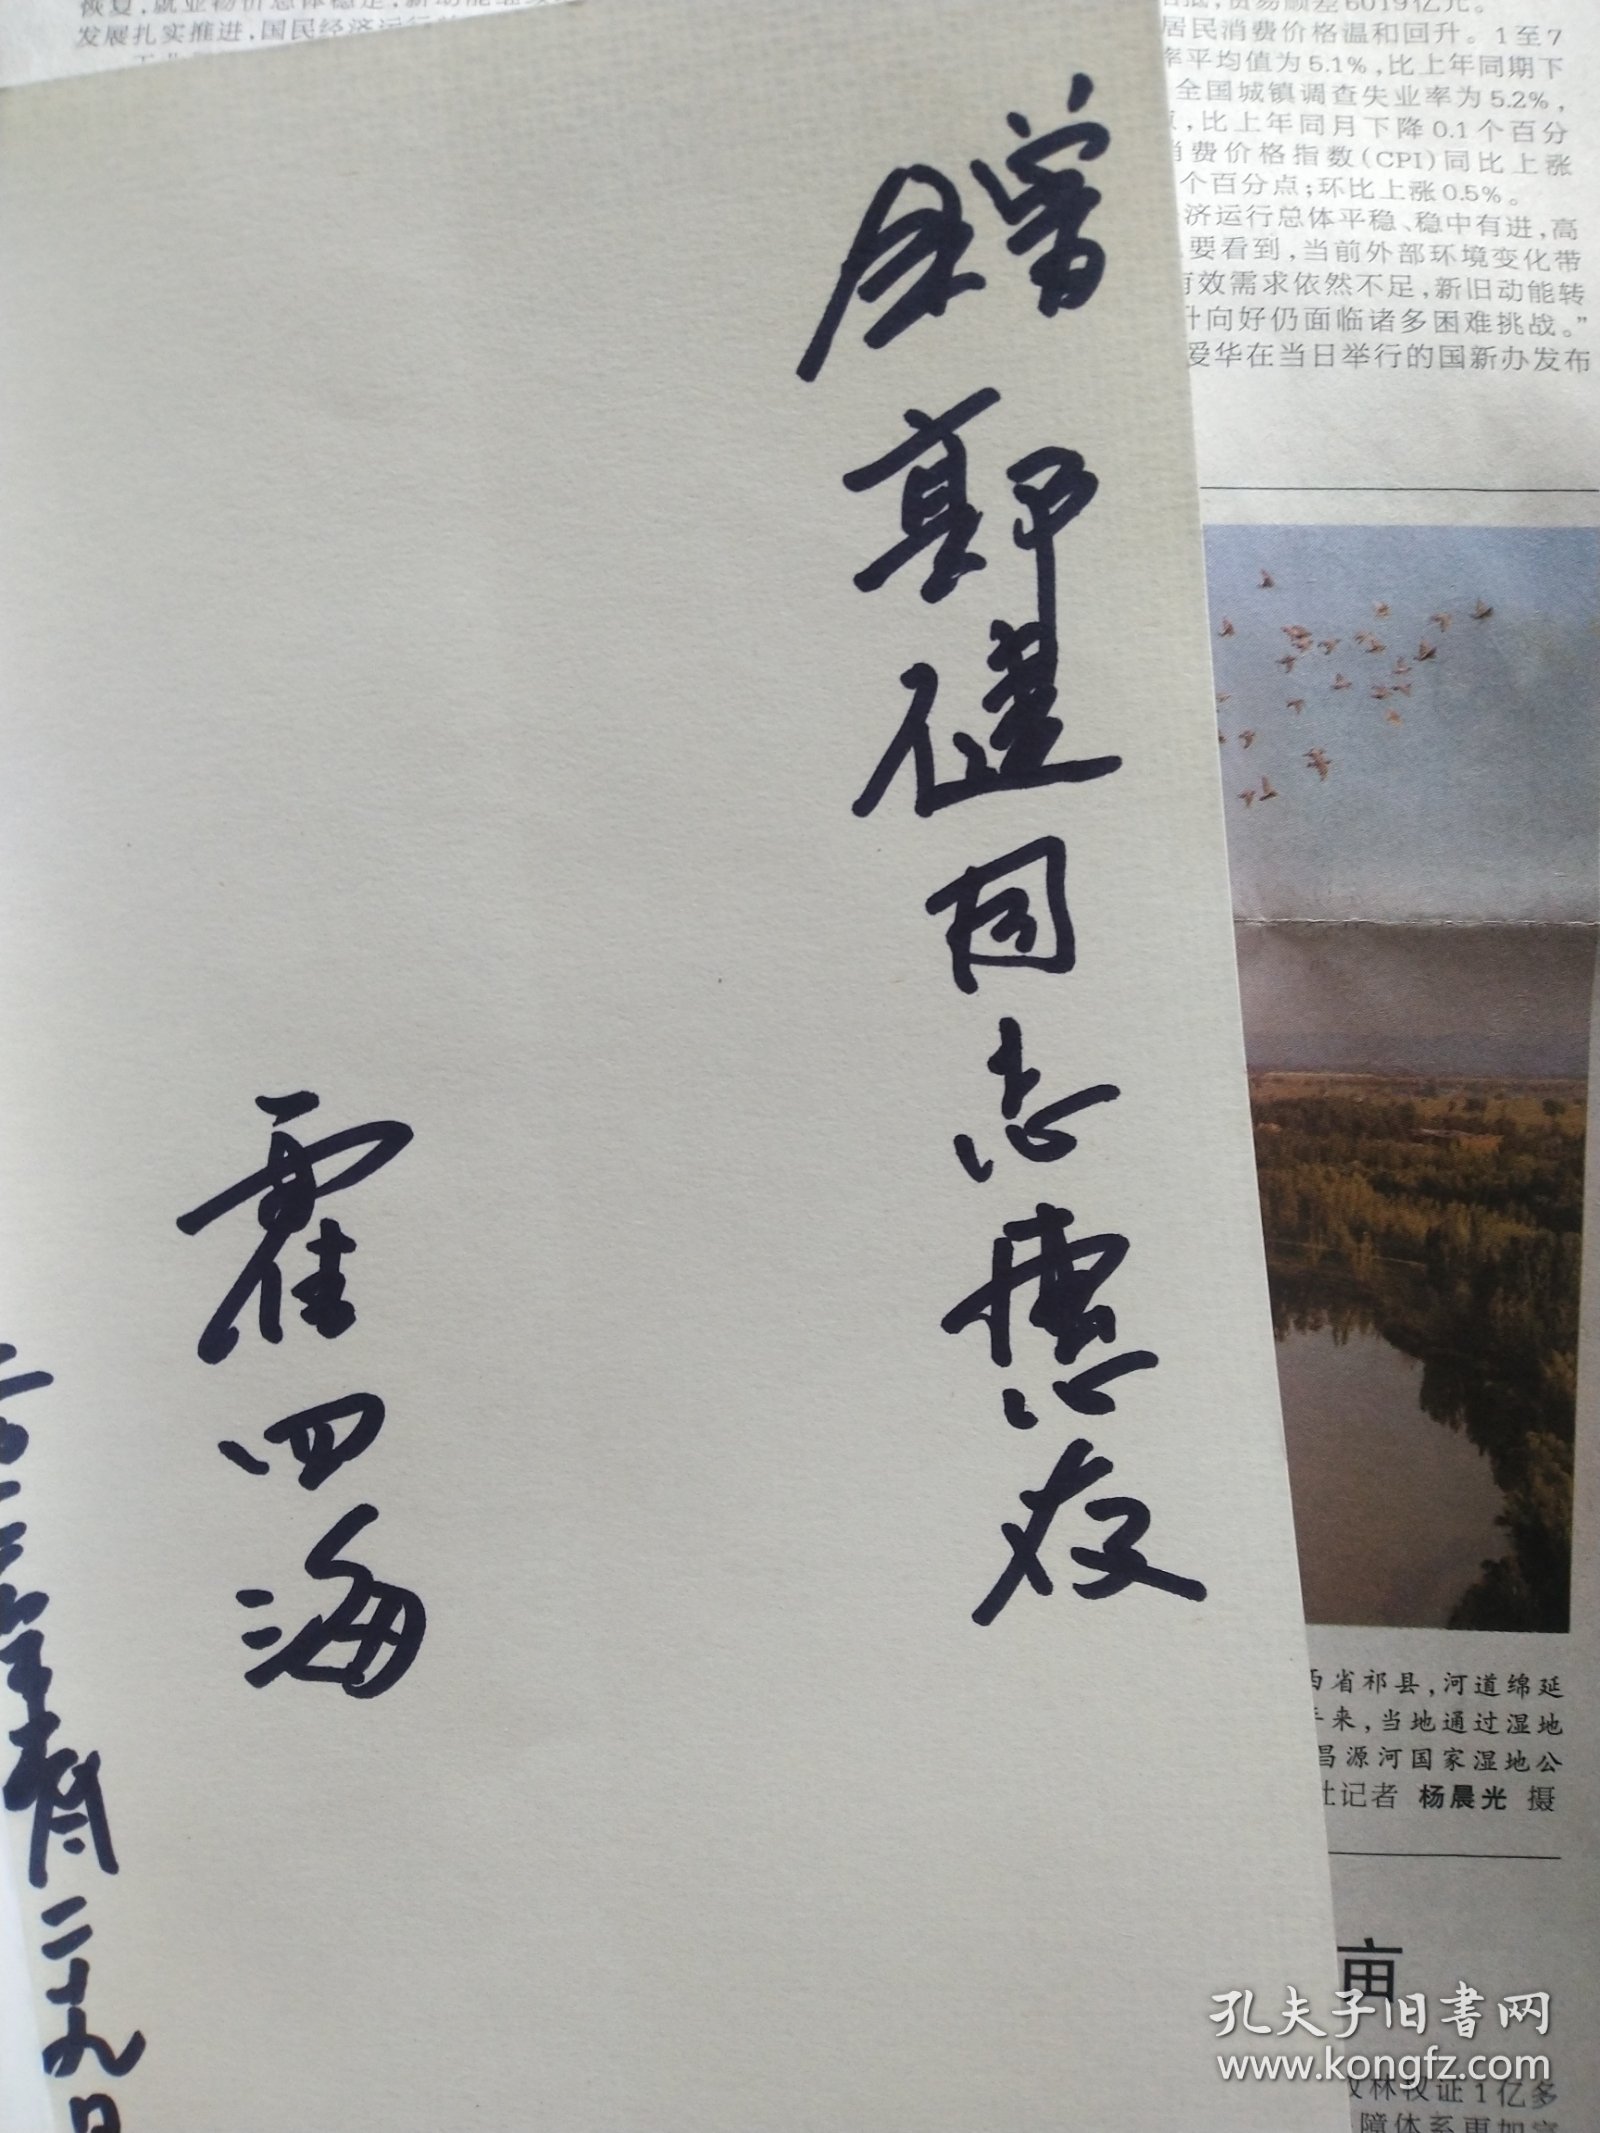 发展扎实推进，国民经济运行
贸易顺差6019亿元。
居民消费价格温和回升。1至7
率平均值为5.1%，比上年同期下
全国城镇调查失业率为5.2%，
，比上年同月下降0.1个百分
消费价格指数(CPI)同比上涨
个百分点；环比上涨0.5%。
济运行总体平稳、稳中有进，高
要看到，当前外部环境变化带
有效需求依然不足，新旧动能转
升向好仍面临诸多困难挑战。”
爱华在当日举行的国新办发布
赠 同志惠存
霍四海
年 月二十九日
西省祁县，河道绵延
年来，当地通过湿地
昌源河国家湿地公
社记者 杨晨光 摄
亩
权证1亿多
障体系更加
孔夫子旧书网
www.kongfz.com